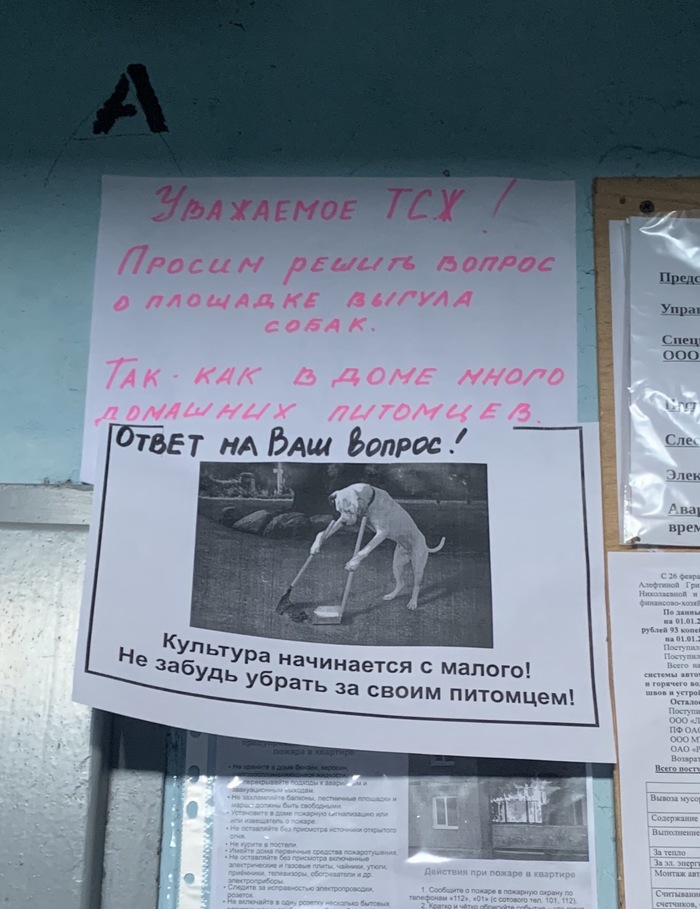 А
УВАЖАЕМОЕ ТСЖ!
ПРОСИМ РЕШИТЬ ВОПРОС
О ПЛОЩАДКЕ ВЫГУЛА
СОБАК.
ТАК-КАК В ДОМЕ МНОГО
ДОМАШНИХ ПИТОМЦЕВ.
ОТВЕТ НА ВАШ ВОПРОС!
Культура начинается с малого!
Не забудь убрать за своим питомцем!
Предс
Управ
Спец
ООО
Слес
Элек
Авар
врем
С 26 февра
Алефтиной Гри
Николаевной и
финансово-хозяй
По данны
на 01.01.2
рублей 93 копе
на 01.01.2
Поступил
Поступил
Всего на
системы авто
и горячего во
швов и устрой
Остало
Поступи
ООО «Л
ПФ ОАО
ООО М
ОАО «Р
Возврат
Всего пост
Вывоза мусо
Содержание
Выполнение
За тепло
За эл. энерг
Монтаж авт
Считывание
счетчиков
пожара в квартире
• Не захламляйте балконы, лестничные площадки и
марш должны быть свободными.
• Установите в доме пожарную сигнализацию или
или извещатель о пожаре.
• Не оставляйте без присмотра источники открытого
огня.
• Не курите в постели.
• Имейте дома первичные средства пожаротушения.
• Не оставляйте без присмотра включенные
электрические и газовые плиты, чайники, утюги,
приёмники, телевизоры, обогреватели и др.
электроприборы.
• Следите за исправностью электропроводки,
розеток.
• Не включайте в одну розетку несколько бытовых
Действия при пожаре в квартире
1. Сообщите о пожаре в пожарную охрану по
телефонам «112», «01» (с сотового тел. 101, 112).
2. Кратко и чётко обрисуйте событие